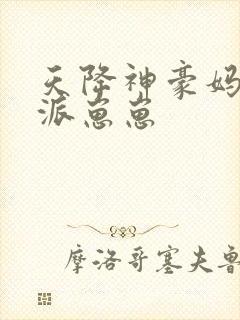 天降神豪妈
派崽崽
摩洛哥塞夫鲁